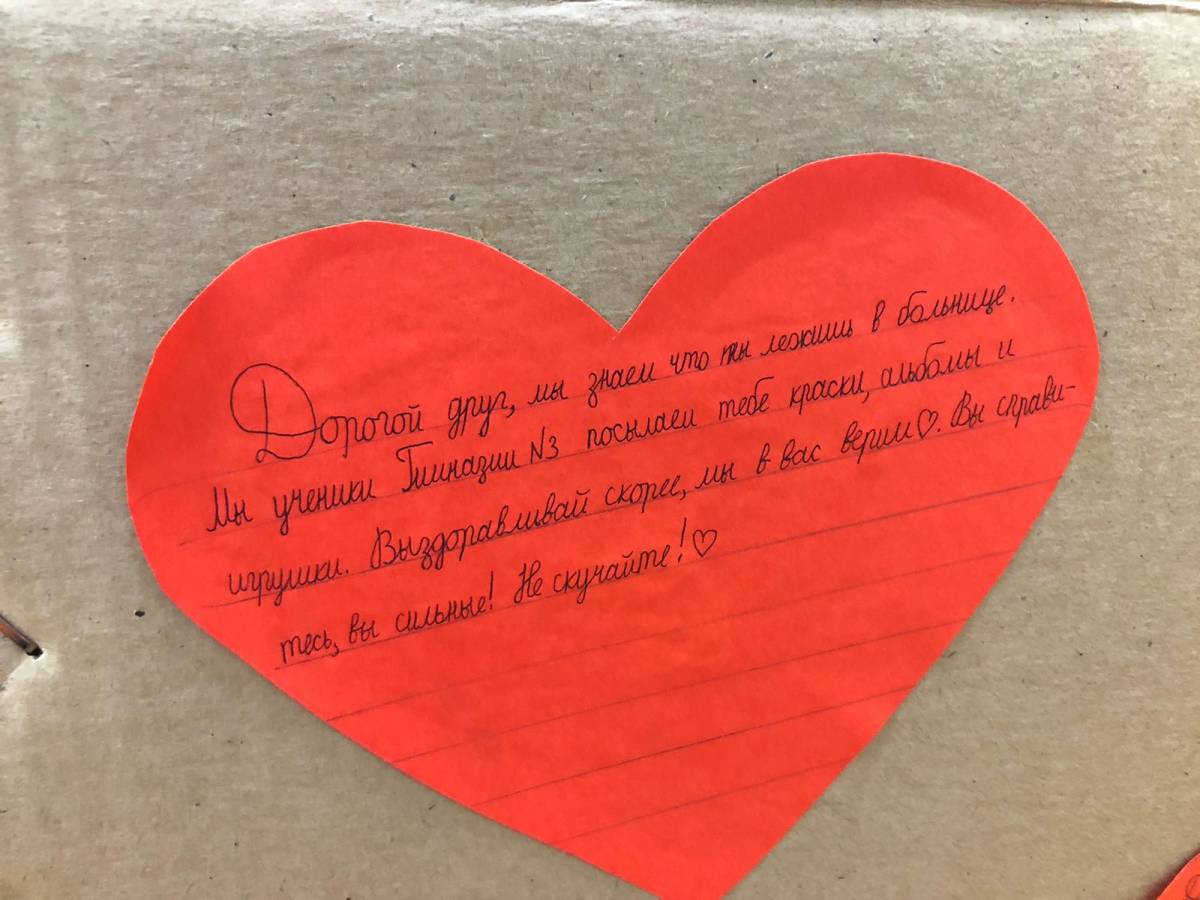 Дорогой друг, мы знаем что ты лежишь в больнице.
Мы ученики Гимназии №3 посылаем тебе краски, альбомы и
игрушки. Выздоравливай скорее, мы в вас верим♡. Вы справи-
тесь, вы сильные! Не скучайте!♡